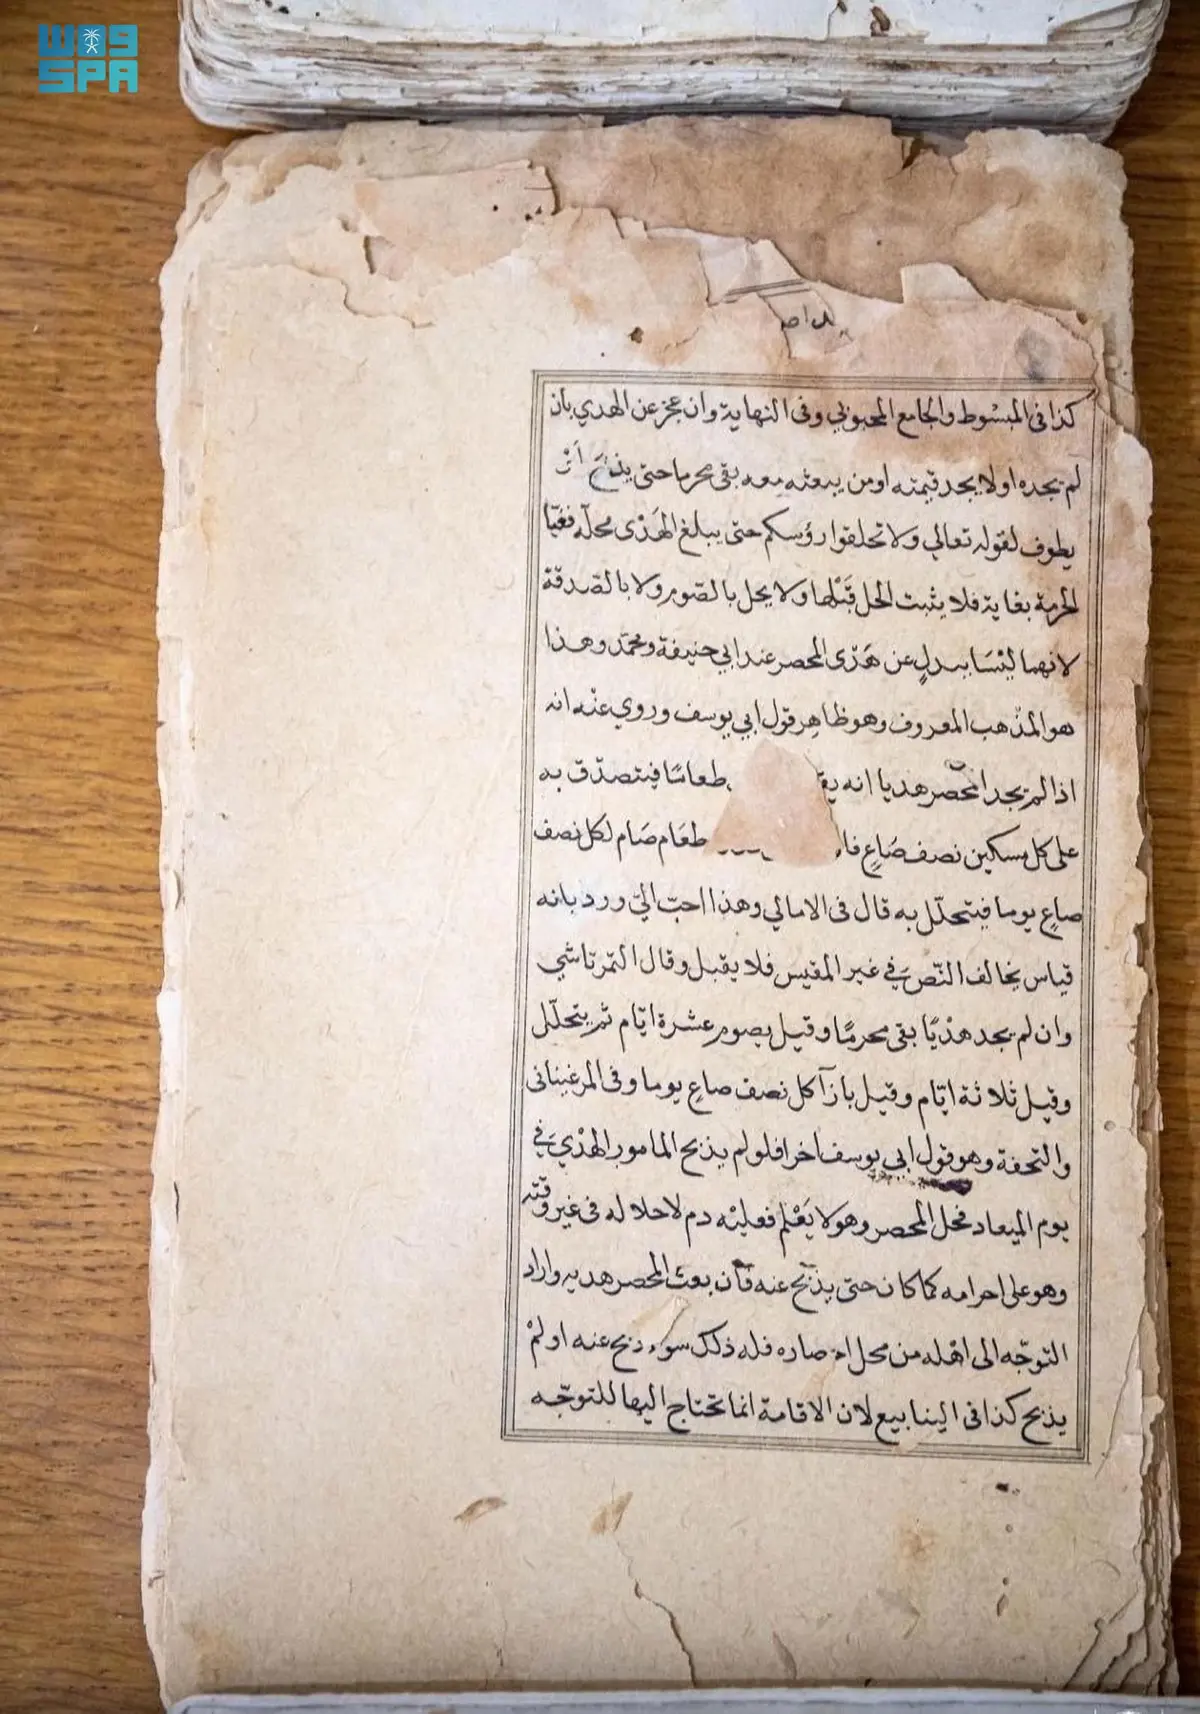 واس
SPA
كذا فى المبسوط والجامع المحبوبي وفى النهاية وان عجز عن الهدي بان
لم يجده او لا يجد قيمته او من يبعثه معه بقى محرما حتى يذبح او
يطوف لقوله تعالي ولا تحلقوا رؤسكم حتى يبلغ الهَدْى محلّه فغيّا
الحرمة بغاية فلا يثبت الحل قَبْلها ولا يحل بالصّوم ولا بالصّدقة
لانهما ليْسَا ببدلٍ عن هَدْى المحصر عند ابي حنيفة ومحمّد وهذا
هو المذْهب المعروف وهو ظاهر قول ابي يوسف وروي عنْه انه
اذا لم يجد المحصر هديا انه طعامًا فيتصدّق به
على كل مسكين نصف صَاعٍ طعَام صَام لكل نصف
صاعٍ يوما فيتحلّل به قال فى الامالي وهذا احبّ اليّ ورد بانه
قياس يخالف النّص في غير المقيس فلا يقبل وقال التمرتاشي
وان لم يجد هدْيًا بقى محرمًا وقيل يصوم عشرة ايّام ثم يتحلّل
وقيل ثلاثة ايّام وقيل بازآ كل نصف صاعٍ يوما وفى المرغينانى
والتحفة وهو قول ابي يوسف اخرا فلو لم يذبح المامور الهدْيَ في
يوم الميعاد فحل المحصر وهو لا يَعْلم فعليْه دم لاحلاله فى غير وقته
وهو على احرامه كما كان حتى يذبح عنه فان بعث المحصر هديه واراد
التوجّه الى اهْله من محل احصاره فله ذلك سوء ذبح عنه او لمْ
يذبح كذا فى الينابيع لان الاقامة انما تحتاج اليها للتوجّه